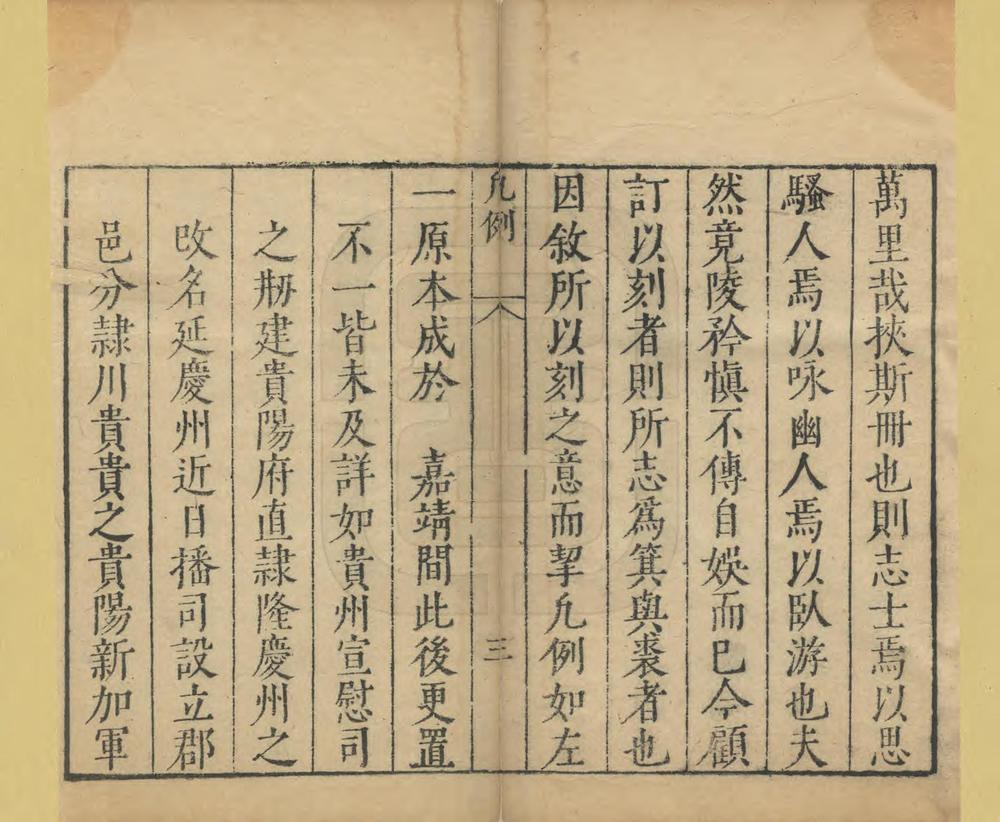 萬里哉挾斯冊也則志士焉以思
騷人焉以咏幽人焉以臥游也夫
然竟陵矜愼不傳自娛而已今顧
訂以刻者則所志爲箕與裘者也
因敘所以刻之意而挈凡例如左
凡例
三
一原本成於 嘉靖間此後更置
不一皆未及詳如貴州宣慰司
之刱建貴陽府直隸隆慶州之
改名延慶州近日播司設立郡
邑分隸川貴貴之貴陽新加軍